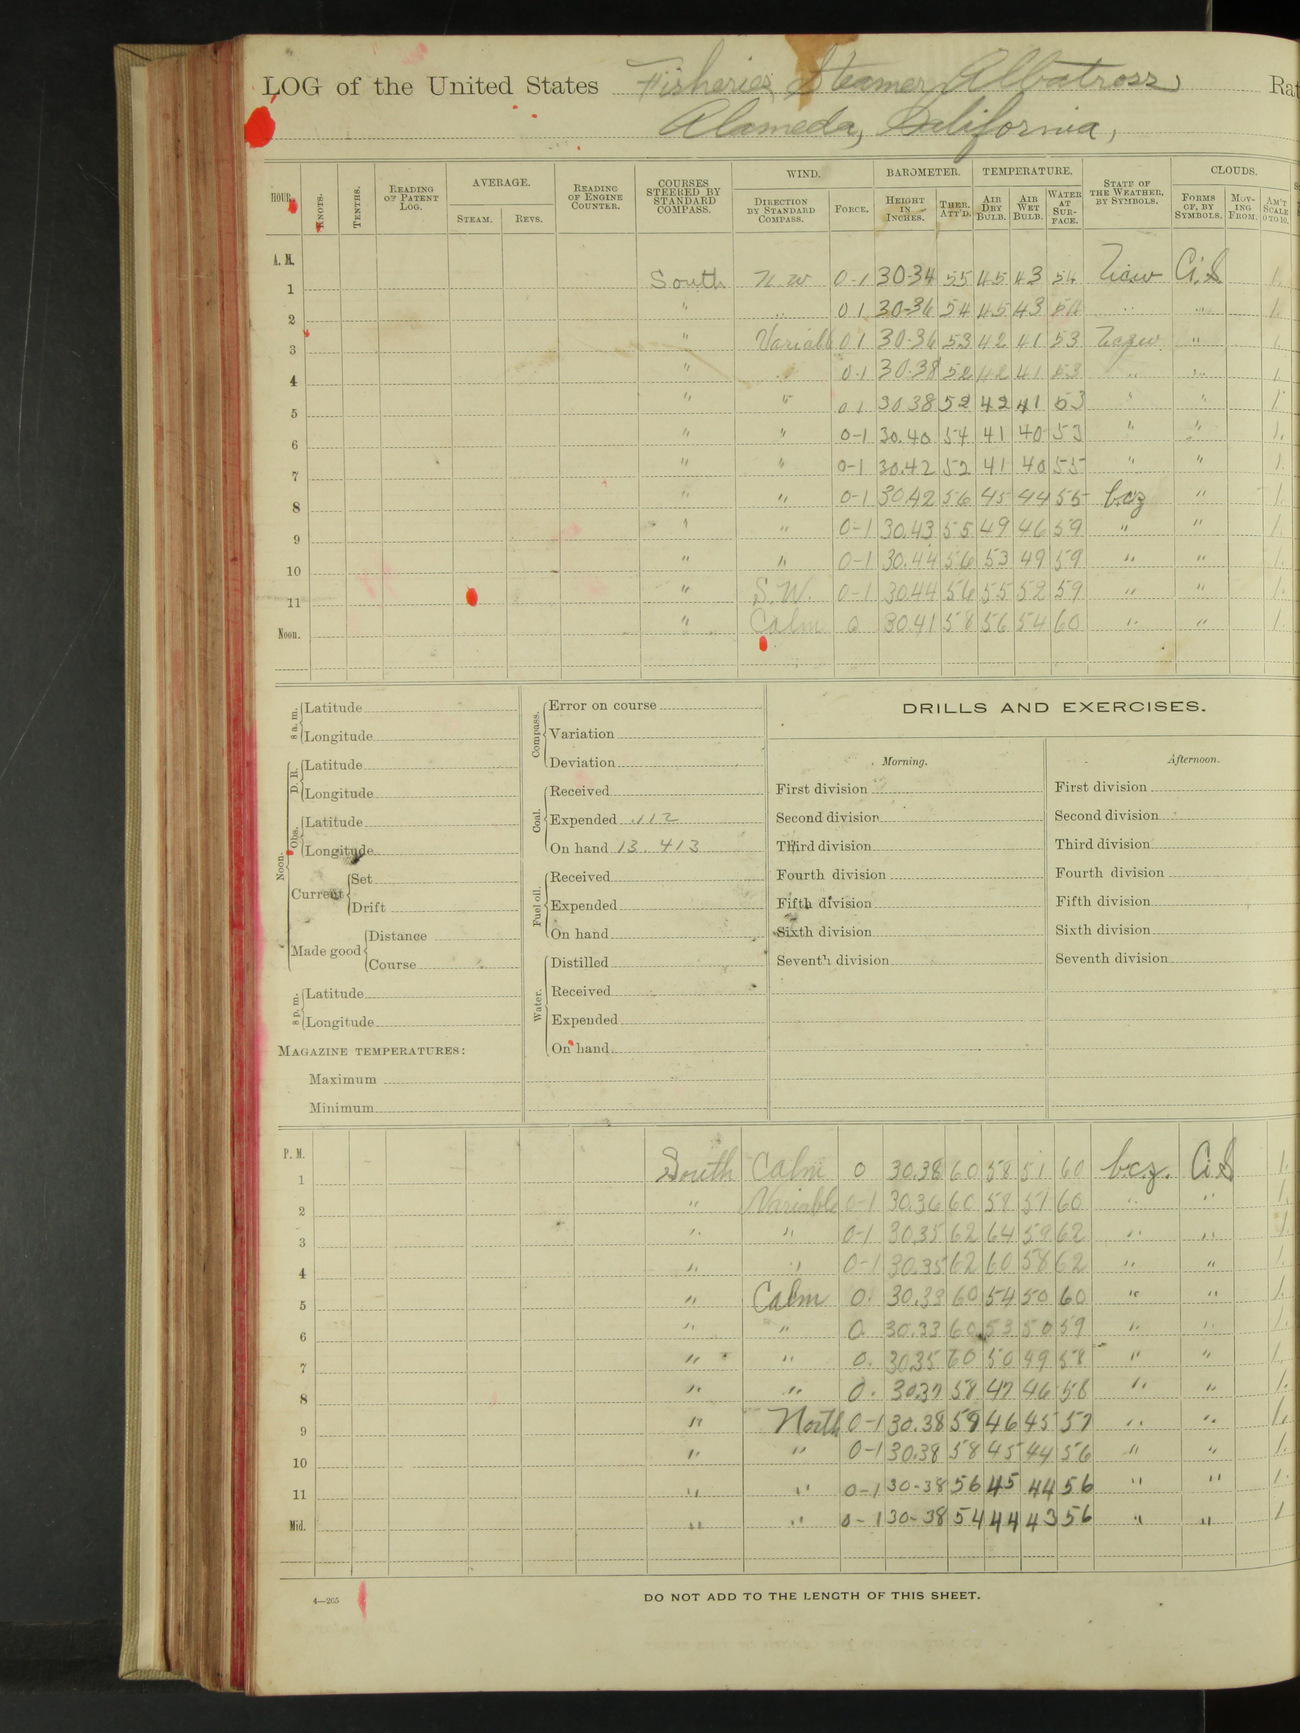 LOG of the United States Fisheries Steamer Albatross, Rat
Alameda, California,
HOUR. KNOTS. TENTHS. READING OF PATENT LOG. AVERAGE. STEAM. REVS. READING OF ENGINE COUNTER. COURSES STEERED BY STANDARD COMPASS. WIND. DIRECTION BY STANDARD COMPASS. FORCE. BAROMETER. HEIGHT IN INCHES. THER. ATT'D. TEMPERATURE. AIR DRY BULB. AIR WET BULB. WATER AT SURFACE. STATE OF THE WEATHER, BY SYMBOLS. CLOUDS. FORMS OF, BY SYMBOLS. MOVING FROM. AM'T SCALE 0 TO 10.
A. M.
1 South N W 0-1 30-34 55 45 43 54 Ci.S 1.
2 " " 0 1 30-36 54 45 43 54 " " 1.
3 " Variable 0 1 30-36 53 42 41 53 " 1.
4 " " 0-1 30-38 52 42 41 53 " " 1.
5 " " 0 1 30 38 52 42 41 53 " " 1.
6 " " 0-1 30.40 54 41 40 53 " " 1.
7 " " 0-1 30.42 52 41 40 55 " " 1.
8 " " 0-1 30.42 56 45 44 55 bcz " 1.
9 " " 0-1 30.43 55 49 46 59 " " 1.
10 " " 0-1 30.44 56 53 49 59 " " 1.
11 " S.W. 0-1 30.44 56 55 52 59 " " 1.
Noon. " Calm 0 30.41 58 56 54 60 " " 1.
8 a. m. Latitude
Longitude
Noon. D. R. Latitude
Longitude
Obs. Latitude
Longitude
Current Set
Drift
Made good Distance
Course
8 p. m. Latitude
Longitude
MAGAZINE TEMPERATURES:
Maximum
Minimum
Compass. Error on course
Variation
Deviation
Coal. Received
Expended .112
On hand 13. 413
Fuel oil. Received
Expended
On hand
Water. Distilled
Received
Expended
On hand
DRILLS AND EXERCISES.
Morning.
First division
Second division
Third division
Fourth division
Fifth division
Sixth division
Seventh division
Afternoon.
First division
Second division
Third division
Fourth division
Fifth division
Sixth division
Seventh division
P. M.
1 South Calm 0 30.38 60 58 51 60 bcz. Ci S 1.
2 " Variable 0-1 30.36 60 58 57 60 " " 1.
3 " " 0-1 30.35 62 64 59 62 " " 1.
4 " " 0-1 30.35 62 60 58 62 " " 1.
5 " Calm 0. 30.33 60 54 50 60 " " 1.
6 " " 0. 30.33 60 53 50 59 " " 1.
7 " " 0. 30.35 60 50 49 58 " " 1.
8 " " 0. 30.37 58 47 46 58 " " 1.
9 " North 0-1 30.38 59 46 45 57 " " 1.
10 " " 0-1 30.38 58 45 44 56 " " 1.
11 " " 0-1 30-38 56 45 44 56 " " 1.
Mid. " " 0-1 30-38 54 44 43 56 " " 1
4—265
DO NOT ADD TO THE LENGTH OF THIS SHEET.